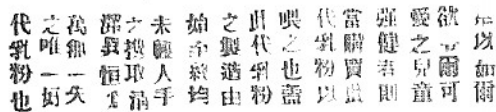 以如
欲爾可
愛之兒童
强健則
當購買
代乳粉以
喂之也蓋
此代乳粉
之製造由
始至終均
未經人手
之取
萬無一失
之唯一
代乳粉也